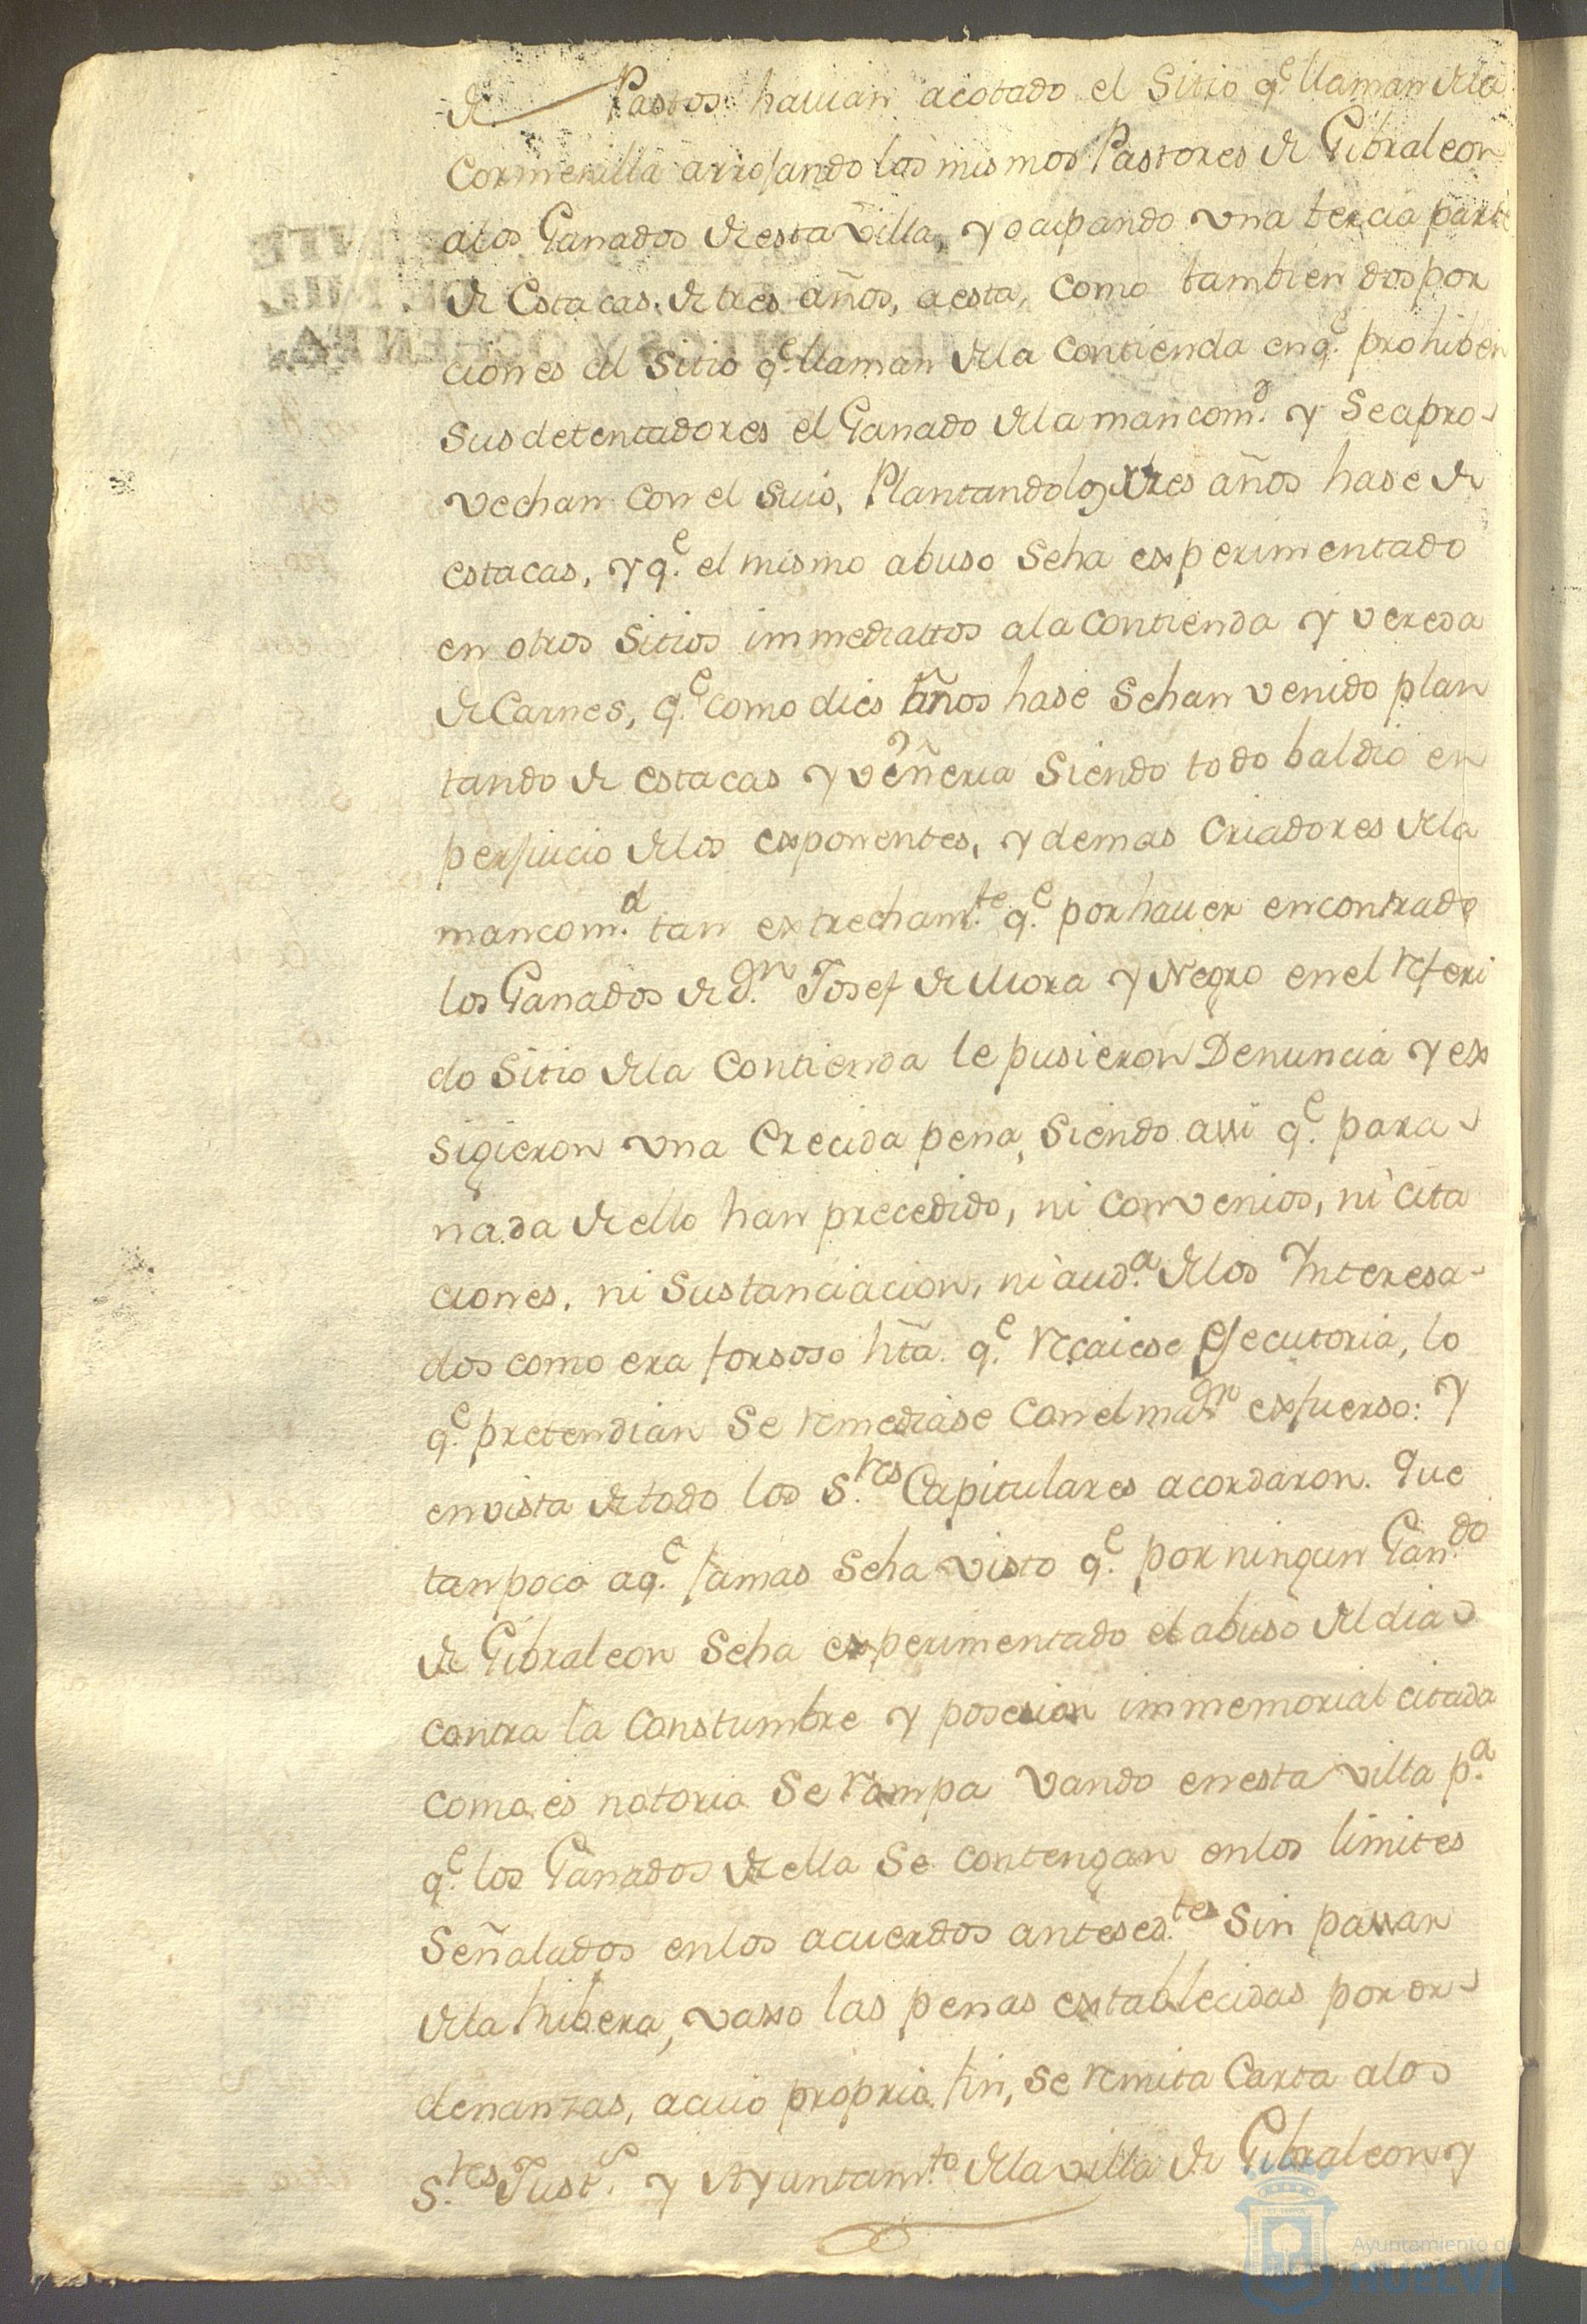 de Pastos havian acotado el Sitio q.e llaman dela
Cormenilla arrojando los mismos Pastores de Gibraleon
alos Ganados de esta villa, y ocupando una tercia parte
de Estacas de tres años, aesta, como tambien dos por
ciones al Sitio q.e llaman dela Contienda en q.e prohiben
sus detentadores el Ganado dela mancom.d y se apro-
vechan con el suio, Plantandolo, tres años hase de
estacas, y q.e el mismo abuso seha experimentado
en otros Sitios immediattos ala Contienda y vereda
de Carnes, q.e como dies años hase sehan venido plan
tando de estacas y veñeria siendo todo baldio en
perjuicio delos exponentes, y demas Criadores dela
mancom.d tan extrecham.te q.e por haver encontrado
los Ganados de d.n Josef de Mora y Negro en el referi
do Sitio dela Contienda le pusieron Denuncia y ex
sigieron una Crecida pena, siendo assi q.e para
nada de ello han precedido, ni convenios, ni cita
ciones, ni sustanciacion, ni aud.a delos Interesa-
dos como era forsoso hta. q.e recaiese Ejecutoria, lo
q.e pretendian se remediase con el ma.or exfuerso: Y
en vista de todo los S.res Capitulares acordaron. Que
tanpoco aq.e jamas seha visto q.e por ningun Gan.do
de Gibraleon seha experimentado el abuso del dia
contra la Constumbre y posesion immemorial citada
como es notorio se rompa vando en esta villa p.a
q.e los Ganados de ella se contengan en los limites
Señalados en los acuerdos antesed.tes sin passar
dela Ribera, vaxo las penas extablecidas por or-
denanzas, a cuio proprio fin, se remita Carta alos
S.res Just.s y Ayuntam.to dela villa de Gibraleon y
Ayuntamiento de
HUELVA